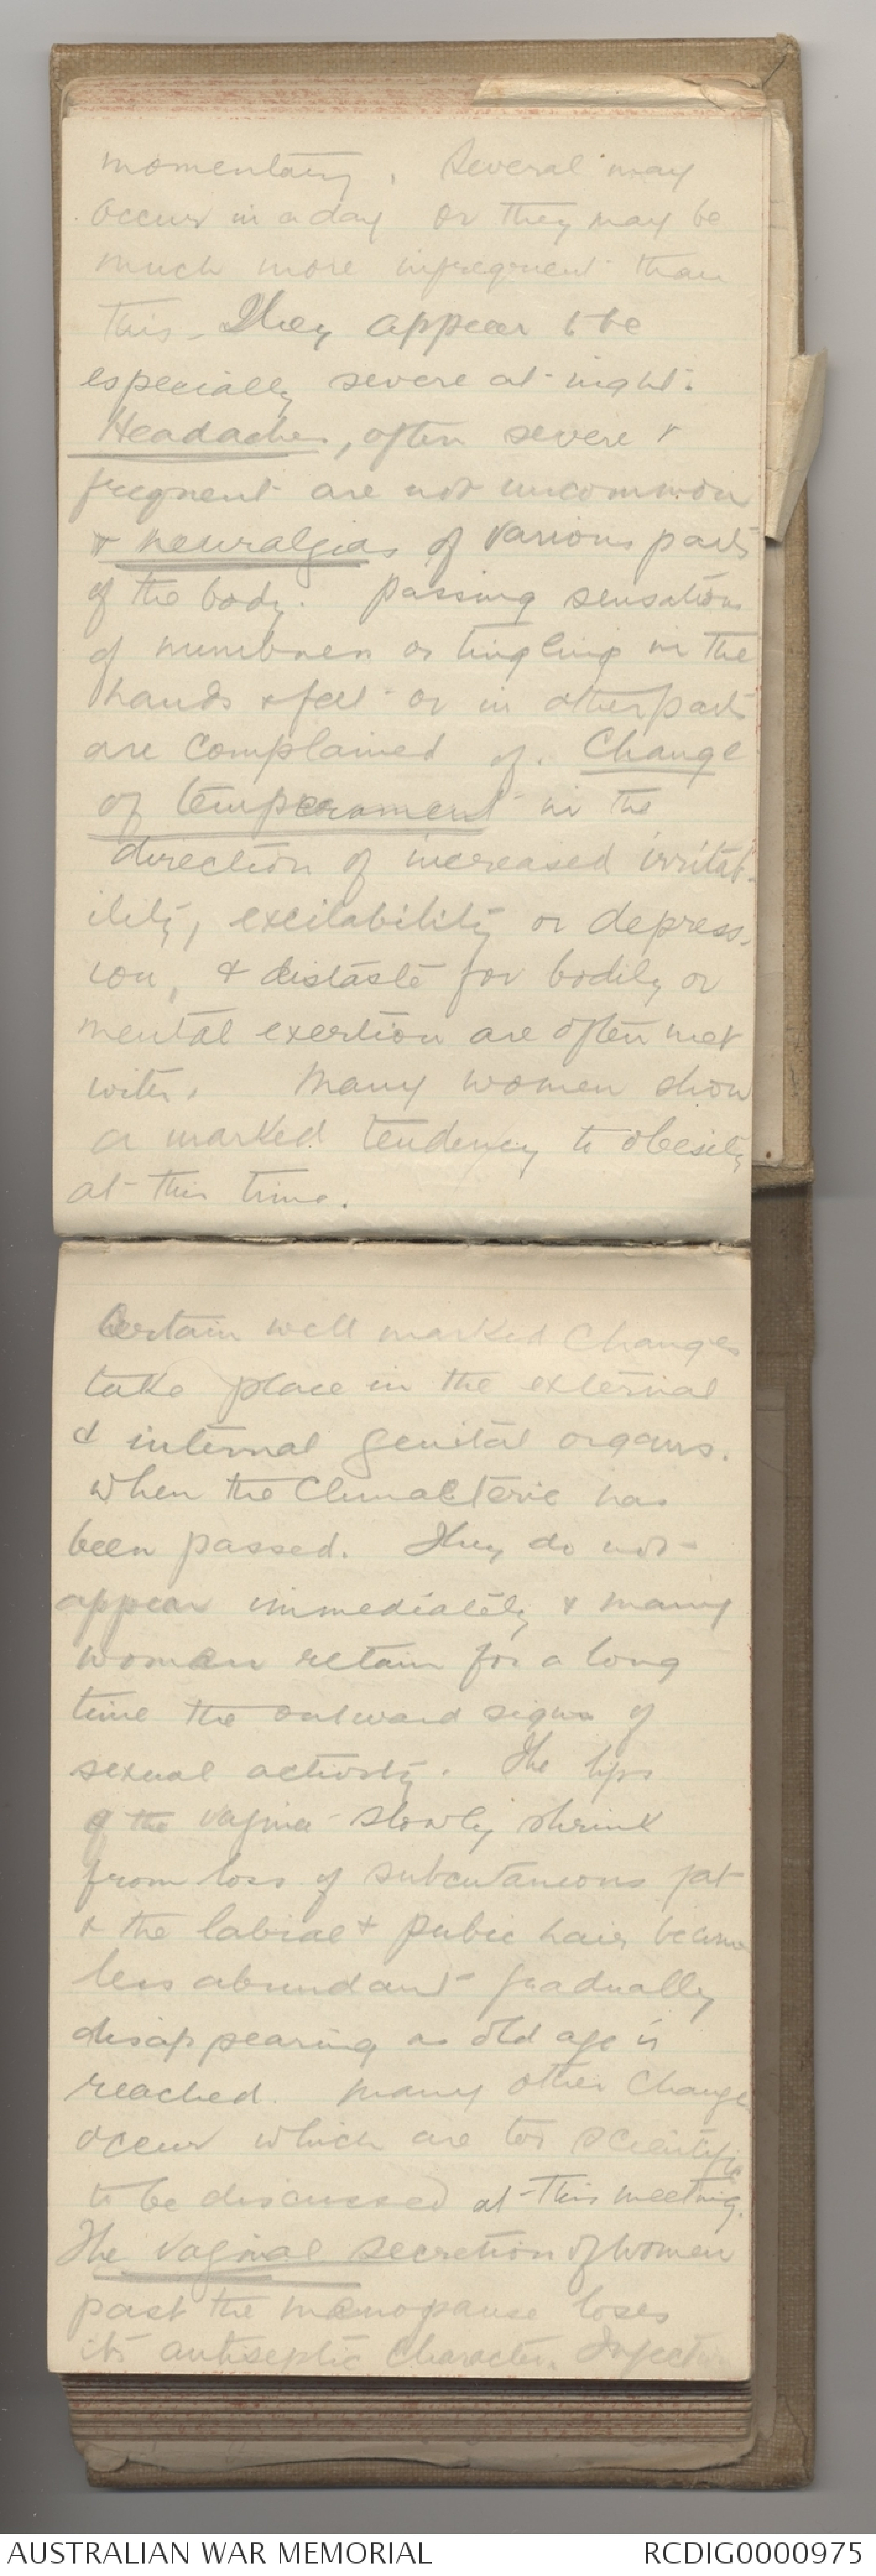 momentary. Several may
occur in a day or they may be
much more infrequent than
this. They appear to be
especially severe at night.
Headaches, often severe &
frequent are not uncommon
& neuralgias of various parts
of the body. Passing sensations
of numbness or tingling in the
hands & feet or in other parts
are complained of. Change
of temperament in the
direction of increased irritab-
ility, excitability or depress-
ion, & distaste for bodily or
mental exertion are often met
with. Many women show
a marked tendency to obesity
at this time.
Certain well marked changes
take place in the external
& internal genital organs.
When the Climacteric has
been passed. They do not
appear immediately & many
women retain for a long
time the outward signs of
sexual activity. The lips
of the vagina slowly shrink
from loss of subcutaneous fat
& the labial & pubic hair become
less abundant gradually
disappearing as old age is
reached. Many other change
occur which are too scientific
to be discussed at this meeting.
The vaginal secretion of women
past the menopause loses
its antiseptic character. Infection
AUSTRALIAN WAR MEMORIAL RCDIG0000975